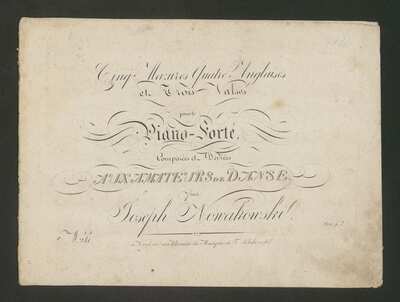 Cinq Mazures Quatre Anglaises
et Trois Valses
pour le
Piano-Forté,
Composées et Dédiées
AUX AMATEURS DE DANSE,
Par
Joseph Nowakowski.